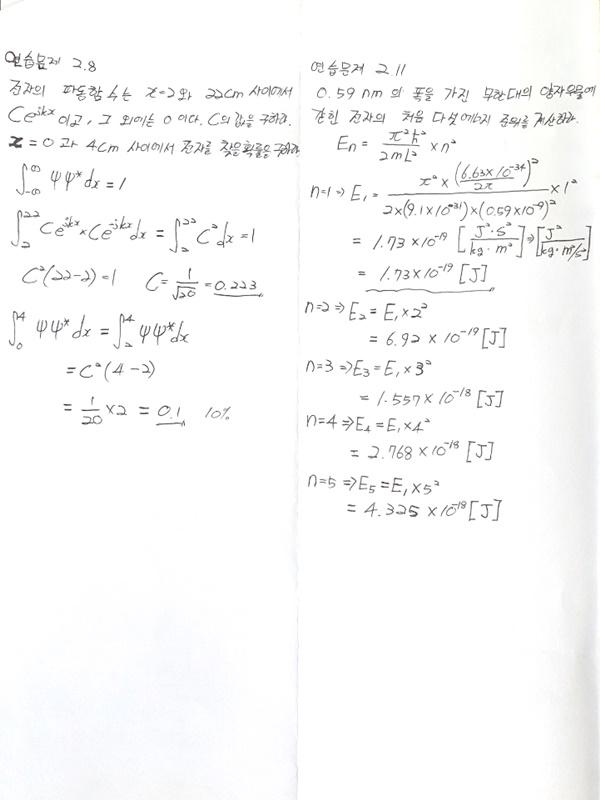 연습문제 2.8
전자의 파동함수는 x=2와 22cm 사이에서
Ce^{jkx} 이고, 그 외에는 0 이다. C의 값을 구하라.
x=0 과 4cm 사이에서 전자를 찾을 확률은 구하라
∫_{-∞}^{∞} ψψ* dx = 1
∫_{2}^{22} Ce^{jkx} × Ce^{-jkx} dx = ∫_{2}^{22} C² dx = 1
C²(22-2)=1   C = 1/√20 = 0.223
∫_{0}^{4} ψψ* dx = ∫_{2}^{4} ψψ* dx
= C²(4-2)
= 1/20 × 2 = 0.1   10%
연습문제 2.11
0.59 nm 의 폭을 가진 무한대의 양자우물에
갇힌 전자의 처음 다섯 에너지 준위를 계산하라.
En = π²ħ²/2mL² × n²
n=1 ⇒ E₁ = π² × (6.63×10^{-34}/2π)² / 2×(9.1×10^{-31})×(0.59×10^{-9})² × 1²
= 1.73 × 10^{-19} [J²·s²/kg·m²] ⇒ [J²/kg·m²/s²]
= 1.73 × 10^{-19} [J]
n=2 ⇒ E₂ = E₁ × 2²
= 6.92 × 10^{-19} [J]
n=3 ⇒ E₃ = E₁ × 3²
= 1.557 × 10^{-18} [J]
n=4 ⇒ E₄ = E₁ × 4²
= 2.768 × 10^{-18} [J]
n=5 ⇒ E₅ = E₁ × 5²
= 4.325 × 10^{-18} [J]